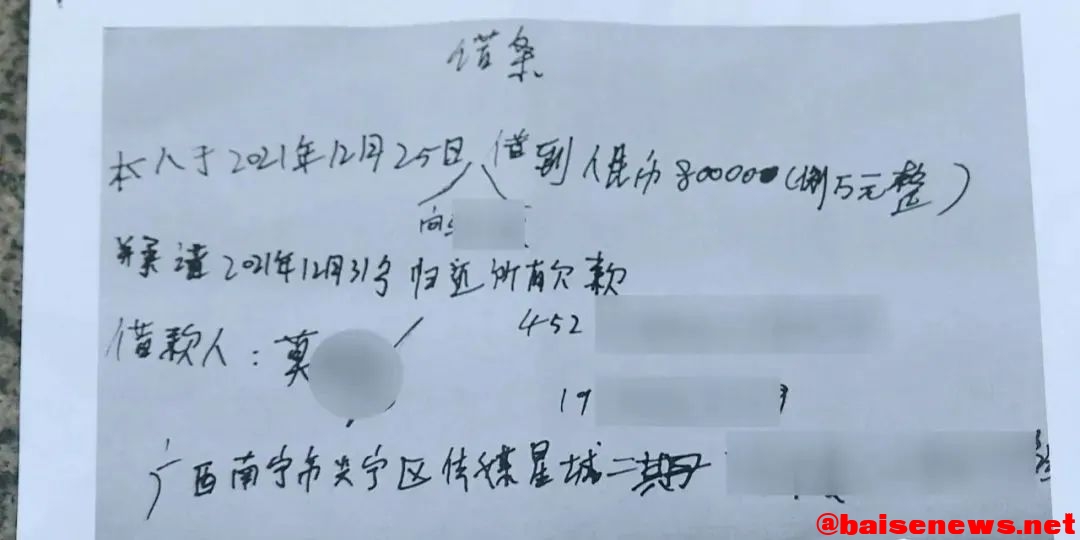 借条
本人于2021年12月25日借到人民币80000(捌万元整)
向
并承诺2021年12月31号归还所有欠款
452
借款人:莫
19
广西南宁市兴宁区传媒星城二期
@baisenews.net